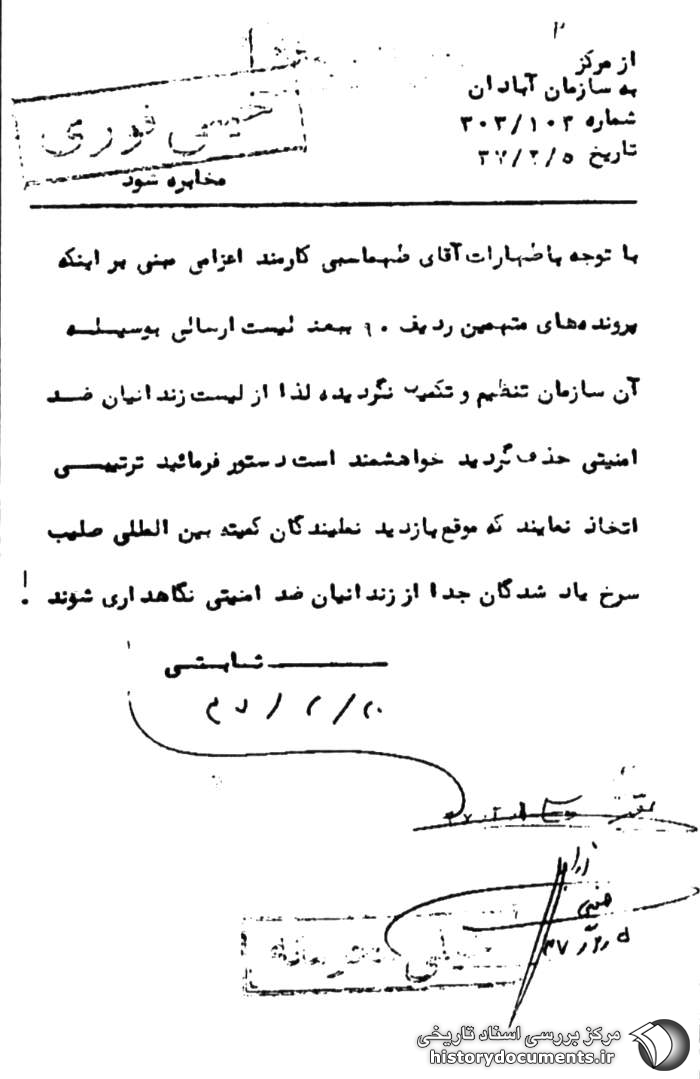 از مرکز
به سازمان آبادان
شماره ۳۰۳/۱۰۳
تاریخ ۳۷/۲/۵
خیلی فوری
مخابره شود
با توجه باظهارات آقای طهماسبی کارمند اعزامی مبنی بر اینکه
پرونده‌های متهمین ردیف ۶۰ ببعد لیست ارسالی بوسیله
آن سازمان تنظیم و تکمیل نگردیده لذا از لیست زندانیان ضد
امنیتی حذف گردید خواهشمند است دستور فرمائید ترتیبی
اتخاذ نمایند که موقع بازدید نمایندگان کمیته بین المللی صلیب
سرخ یاد شدگان جدا از زندانیان ضد امنیتی نگاهداری شوند !
ثابتی
خیلی محرمانه
مرکز بررسی اسناد تاریخی
historydocuments.ir